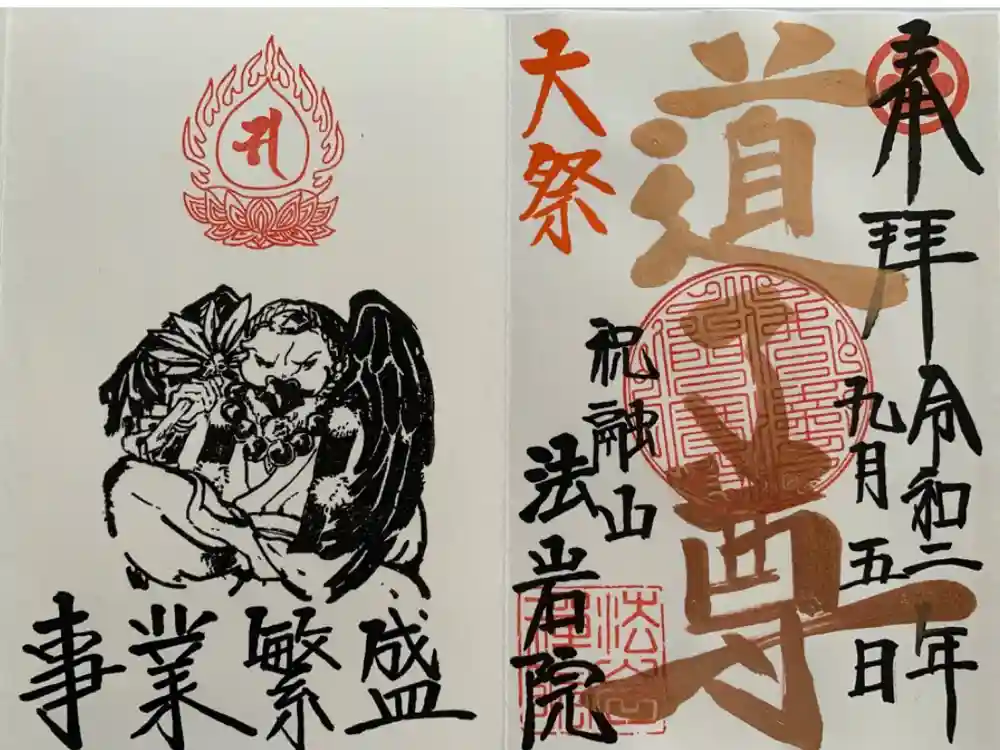 奉拝
令和二年
九月五日
道了尊
祝融山
法岩院
大祭
事業繁盛